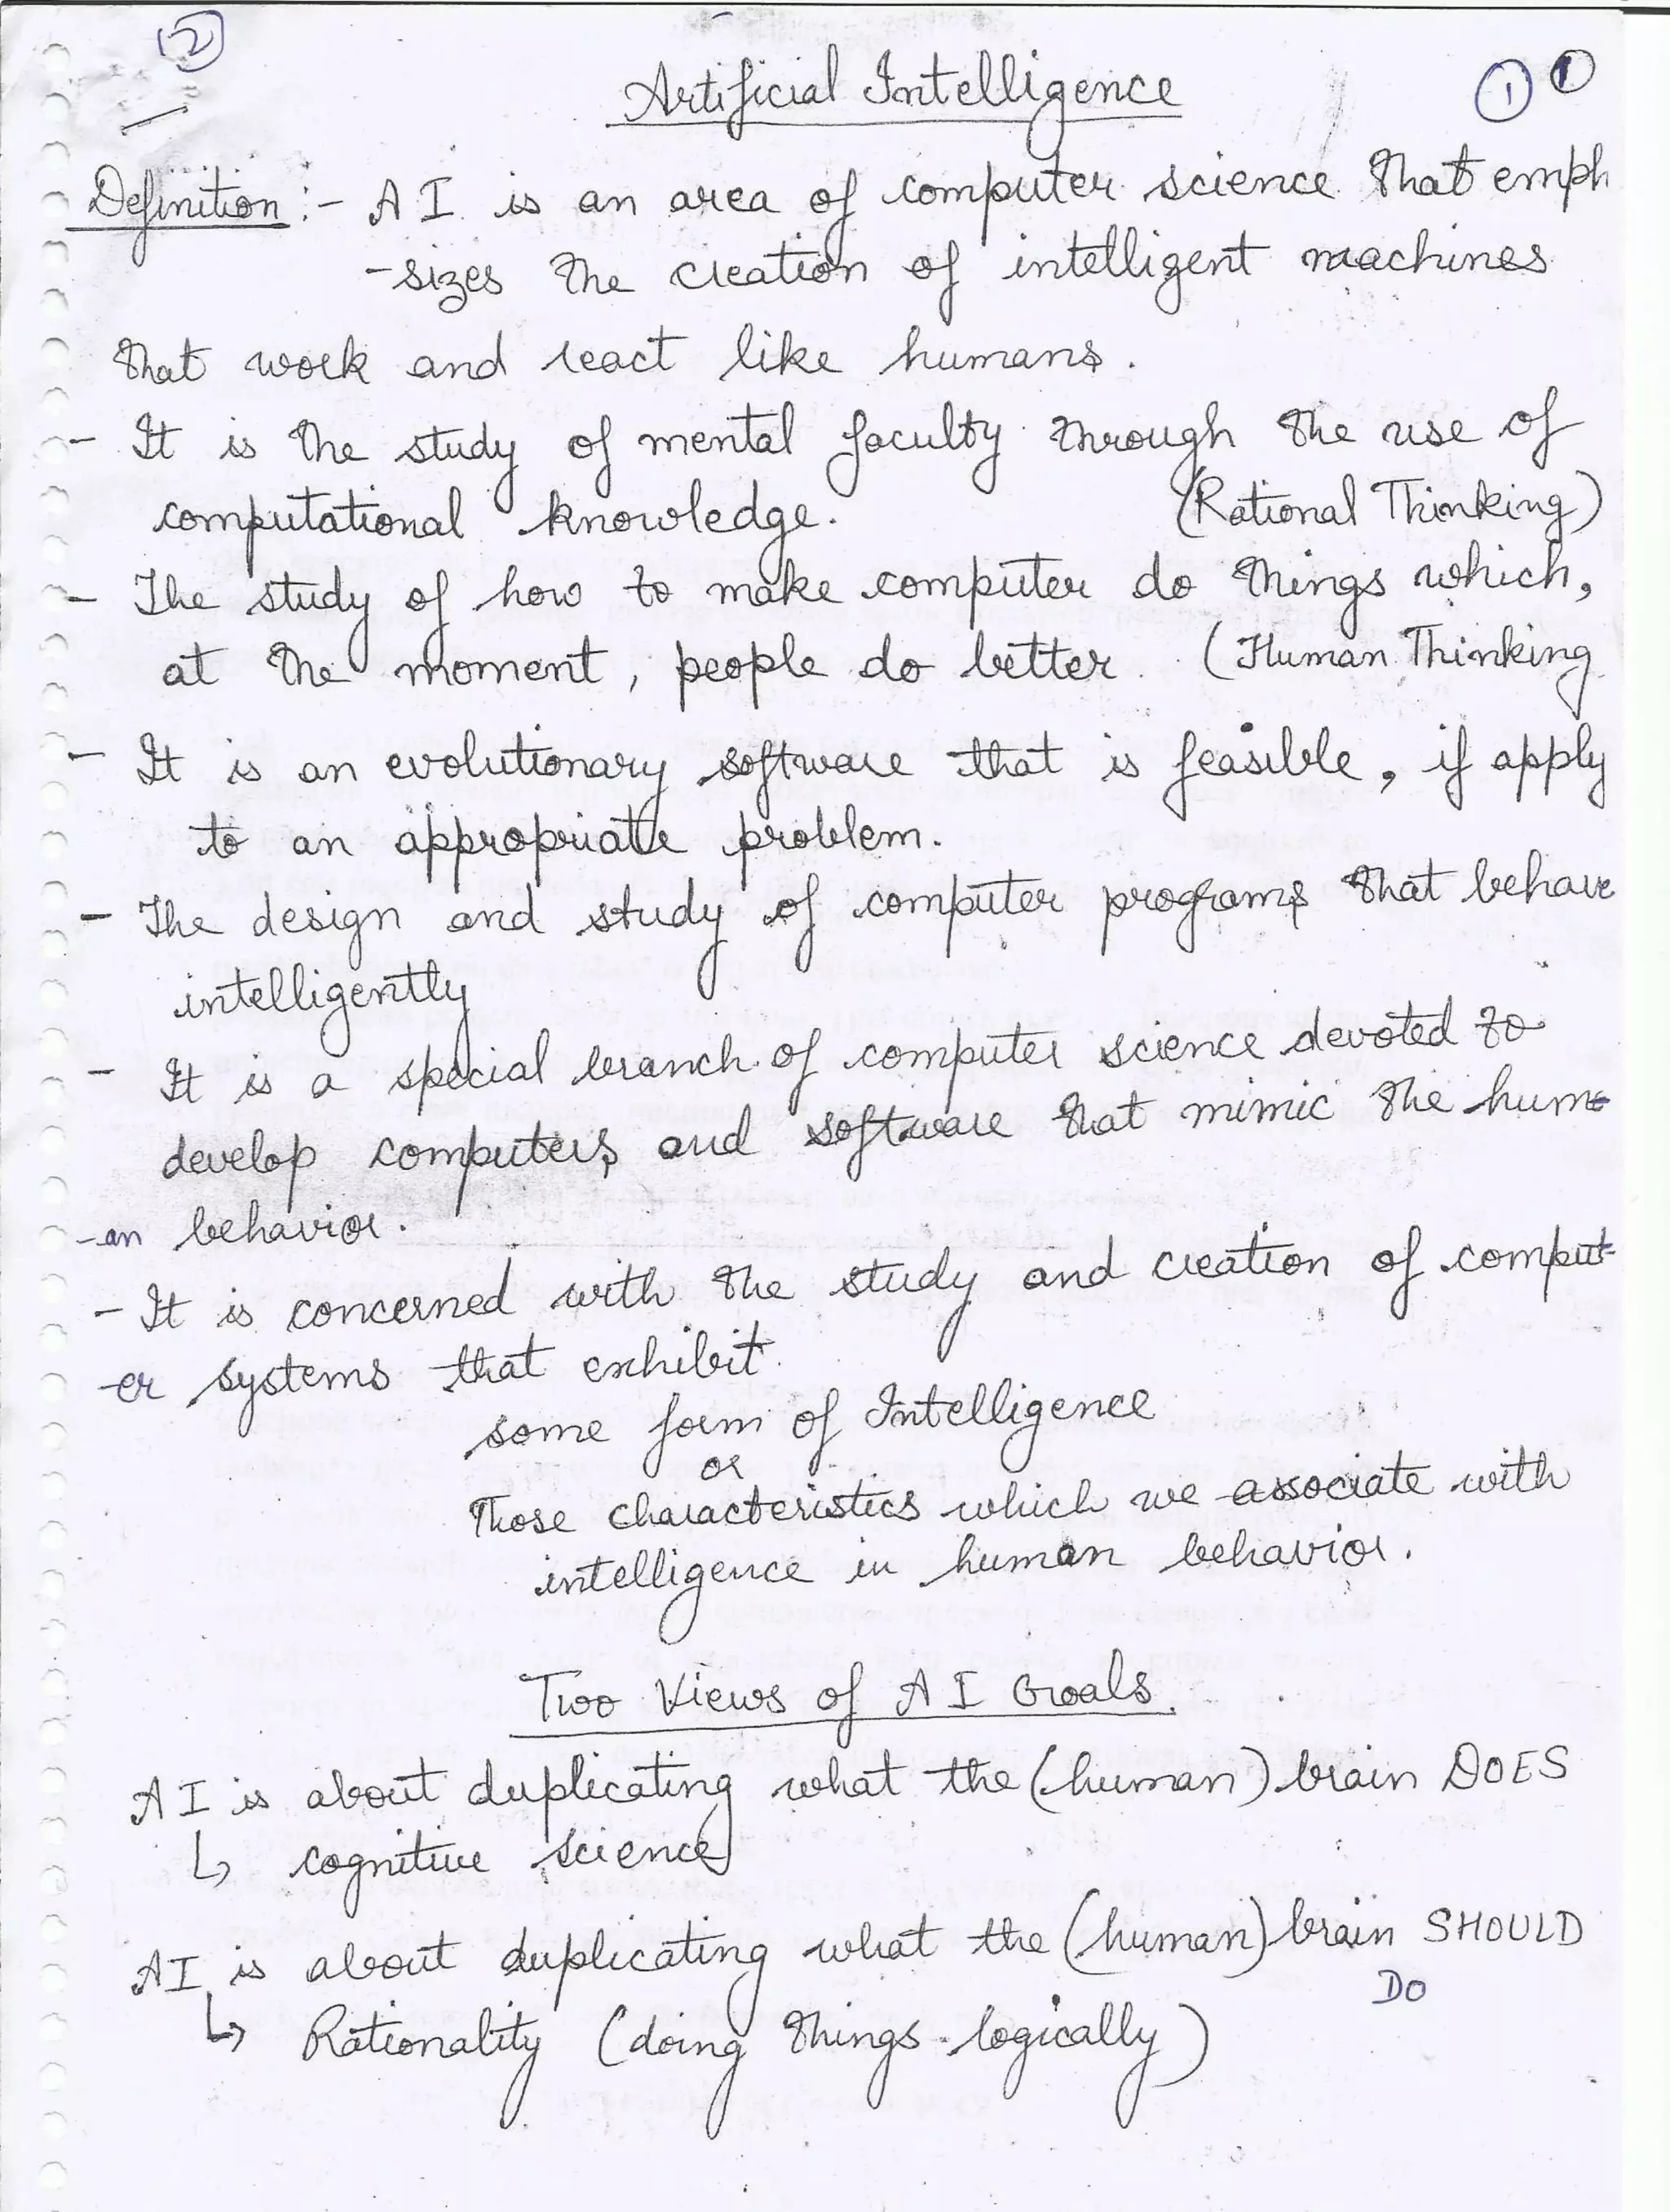 (2)
Artificial Intelligence
1 1
Definition :- A I is an area of computer science that emph
-sizes the creation of intelligent machines
that work and react like humans.
- It is the study of mental faculty through the use of
computational knowledge. (Rational Thinking)
- The study of how to make computer do things which,
at the moment, people do better. (Human Thinking
- It is an evolutionary software that is feasible, if apply
to an appropriate problem.
- The design and study of computer programs that behave
intelligently
- It is a special branch of computer science devoted to
develop computers and software that mimic the hum-
-an behavior.
- It is concerned with the study and creation of comput-
-er systems that exhibit
some form of Intelligence
or
Those characteristics which we associate with
intelligence in human behavior.
Two Views of A I Goals.
A I is about duplicating what the (human) brain DOES
↳ cognitive science
AI is about duplicating what the (human) brain SHOULD
DO
↳ Rationality (doing things logically)